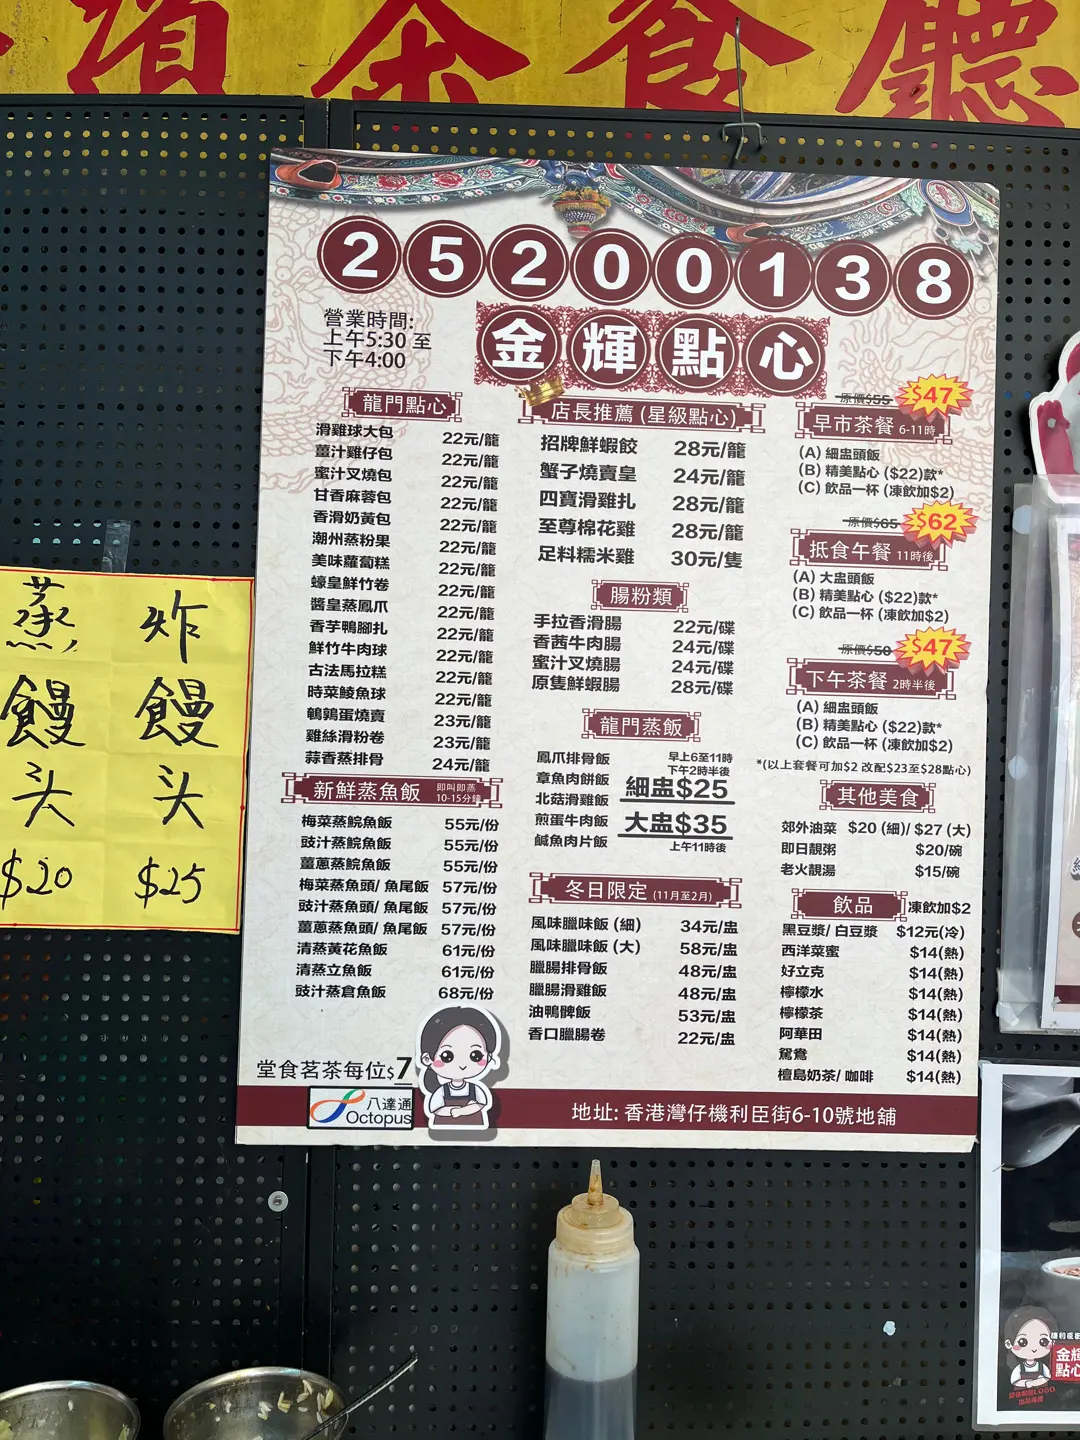 茶餐廳
25200138
營業時間:
上午5:30 至
下午4:00
金輝點心
龍門點心
滑雞球大包 22元/籠
薑汁雞仔包 22元/籠
蜜汁叉燒包 22元/籠
甘香麻蓉包 22元/籠
香滑奶黃包 22元/籠
潮州蒸粉果 22元/籠
美味蘿蔔糕 22元/籠
蠔皇鮮竹卷 22元/籠
醬皇蒸鳳爪 22元/籠
香芋鴨腳扎 22元/籠
鮮竹牛肉球 22元/籠
古法馬拉糕 22元/籠
時菜鯪魚球 22元/籠
鵪鶉蛋燒賣 23元/籠
雞絲滑粉卷 23元/籠
蒜香蒸排骨 24元/籠
新鮮蒸魚飯 即叫即蒸 10-15分鐘
梅菜蒸鯇魚飯 55元/份
豉汁蒸鯇魚飯 55元/份
薑蔥蒸鯇魚飯 55元/份
梅菜蒸魚頭/ 魚尾飯 57元/份
豉汁蒸魚頭/ 魚尾飯 57元/份
薑蔥蒸魚頭/ 魚尾飯 57元/份
清蒸黃花魚飯 61元/份
清蒸立魚飯 61元/份
豉汁蒸倉魚飯 68元/份
堂食茗茶每位$7
八達通
Octopus
店長推薦 (星級點心)
招牌鮮蝦餃 28元/籠
蟹子燒賣皇 24元/籠
四寶滑雞扎 28元/籠
至尊棉花雞 28元/籠
足料糯米雞 30元/隻
腸粉類
手拉香滑腸 22元/碟
香茜牛肉腸 24元/碟
蜜汁叉燒腸 24元/碟
原隻鮮蝦腸 28元/碟
龍門蒸飯
鳳爪排骨飯
章魚肉餅飯
北菇滑雞飯
煎蛋牛肉飯
鹹魚肉片飯
早上6至11時
下午2時半後
細盅$25
大盅$35
上午11時後
冬日限定 (11月至2月)
風味臘味飯 (細) 34元/盅
風味臘味飯 (大) 58元/盅
臘腸排骨飯 48元/盅
臘腸滑雞飯 48元/盅
油鴨髀飯 53元/盅
香口臘腸卷 22元/盅
原價$55 $47
早市茶餐 6-11時
(A) 細盅頭飯
(B) 精美點心 ($22)款*
(C) 飲品一杯 (凍飲加$2)
原價$65 $62
抵食午餐 11時後
(A) 大盅頭飯
(B) 精美點心 ($22)款*
(C) 飲品一杯 (凍飲加$2)
原價$50 $47
下午茶餐 2時半後
(A) 細盅頭飯
(B) 精美點心 ($22)款*
(C) 飲品一杯 (凍飲加$2)
*(以上套餐可加$2 改配$23至$28點心)
其他美食
郊外油菜 $20 (細)/ $27 (大)
即日靚粥 $20/碗
老火靚湯 $15/碗
飲品 凍飲加$2
黑豆漿/ 白豆漿 $12元(冷)
西洋菜蜜 $14(熱)
好立克 $14(熱)
檸檬水 $14(熱)
檸檬茶 $14(熱)
阿華田 $14(熱)
鴛鴦 $14(熱)
檀島奶茶/ 咖啡 $14(熱)
地址: 香港灣仔機利臣街6-10號地舖
蒸饅头
$20
炸饅头
$25
金輝
點心